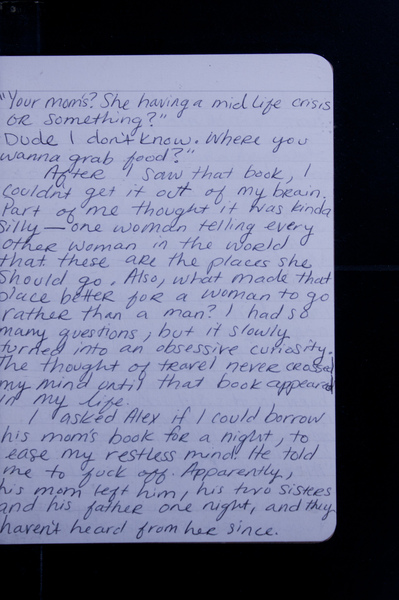 "Your mom's? She having a mid life crisis
or something?"
Dude I don't know. Where you
wanna grab food?"
After I saw that book, I
couldn't get it out of my brain.
Part of me thought it was kinda
silly—one woman telling every
other woman in the world
that these are the places she
should go. Also, what made that
place better for a woman to go
rather than a man? I had so
many questions, but it slowly
turned into an obsessive curiosity.
The thought of travel never crossed
my mind until that book appeared
in my life.
I asked Alex if I could borrow
his mom's book for a night, to
ease my restless mind. He told
me to fuck off. Apparently,
his mom left him, his two sisters
and his father one night, and they
haven't heard from her since.